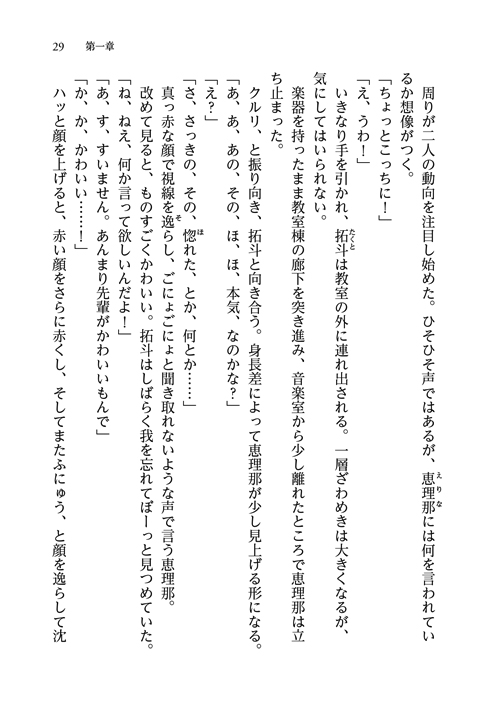 29 第一章
周りが二人の動向を注目し始めた。ひそひそ声ではあるが、恵理那には何を言われてい
るか想像がつく。
「ちょっとこっちに！」
「え、うわ！」
いきなり手を引かれ、拓斗は教室の外に連れ出される。一層ざわめきは大きくなるが、
気にしてはいられない。
楽器を持ったまま教室棟の廊下を突き進み、音楽室から少し離れたところで恵理那は立
ち止まった。
クルリ、と振り向き、拓斗と向き合う。身長差によって恵理那が少し見上げる形になる。
「あ、あ、あの、その、ほ、ほ、本気、なのかな？」
「え？」
「さ、さっきの、その、惚れた、とか、何とか……」
真っ赤な顔で視線を逸らし、ごにょごにょと聞き取れないような声で言う恵理那。
改めて見ると、ものすごくかわいい。拓斗はしばらく我を忘れてぼーっと見つめていた。
「ね、ねえ、何か言って欲しいんだよ！」
「あ、す、すいません。あんまり先輩がかわいいもんで」
「か、か、かわいい……！」
ハッと顔を上げると、赤い顔をさらに赤くし、そしてまたふにゅう、と顔を逸らして沈